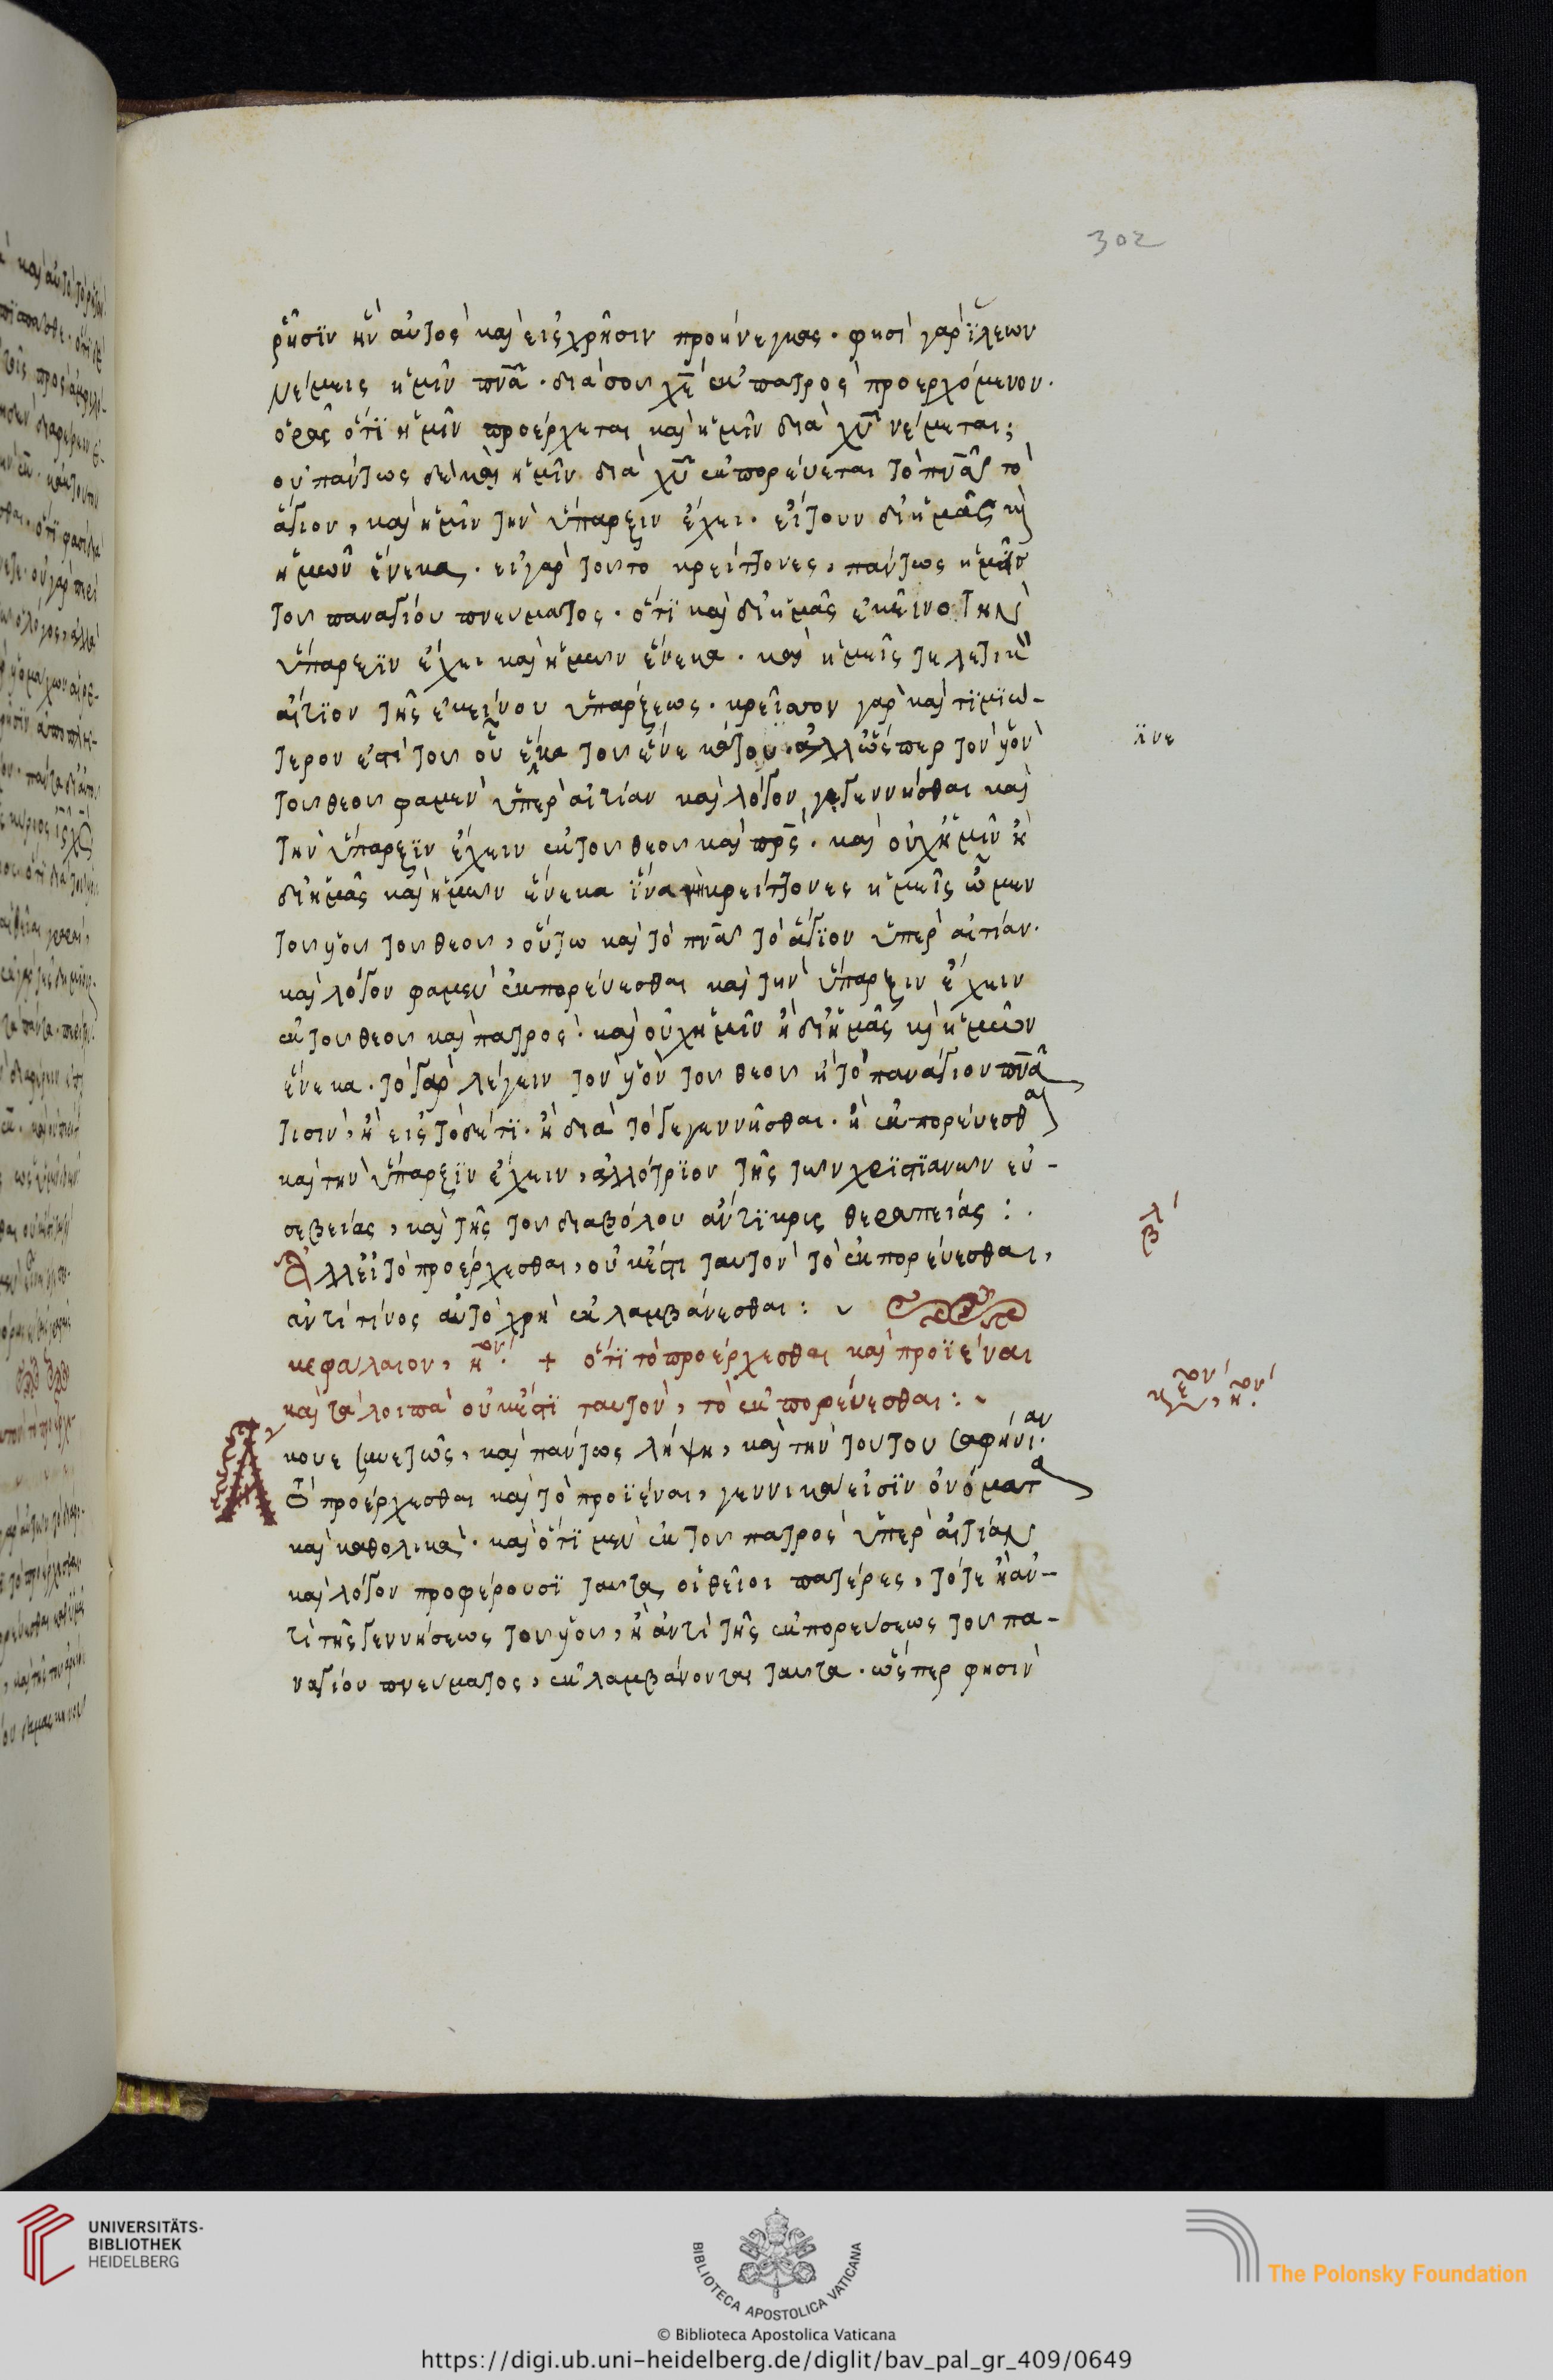 302
ῥῆσϊν ἣν αὐτὸς καὶ εἰς χρῆσιν προήνεγκας. φησὶ γὰρ ἵλεων
νέμεις ἡμῖν πνᾶ. διὰ σοῦ χε̄ ἐκ πατρὸς προερχόμενον.
ὁρᾷς ὅτϊ ἡμῖν προέρχεται καὶ ἡμῖν διὰ χῡ νέμεται;
οὐ πάντως δὲ καὶ ἡμῖν διὰ χῡ ἐκπορεύεται τὸ πνᾶ τὸ
ἅγιον, καὶ ἡμῖν τὴν ὕπαρξιν ἔχει. εἴτουν δι' ἡμᾶς κ(αὶ)
ἡμῶν ἕνεκα. εἰ γὰρ τοῦτο κρείττονες, πάντως ἡμεῖς
τοῦ παναγίου πνεύματος. ὅτϊ καὶ δι' ἡμᾶς ἐκεῖνο τὴν
ὕπαρξϊν ἔχει καὶ ἡμῶν ἕνεκα. καὶ ἡμεῖς τελετικὸν
αἴτϊον τῆς ἐκείνου ὑπάρξεως. κρεῖττον γὰρ καὶ τϊμϊώ-
τερον ἐστὶ τοῦ οὗ ἕνεκα τοῦ ἕνεκά του. ἀλλ' ὥσπερ τὸν υἱὸν
τοῦ θεοῦ φαμὲν ὑπὲρ αἰτίαν καὶ λόγον γεγεννῆσθαι καὶ
τὴν ὕπαρξϊν ἔχειν ἐκ τοῦ θεοῦ καὶ πρ̄ς. καὶ οὐχ ἡμῖν ἢ
δι' ἡμᾶς καὶ ἡμῶν ἕνεκα ἵνα μὴ κρείττονες ἡμεῖς ὦμεν
τοῦ υἱοῦ τοῦ θεοῦ, οὕτω καὶ τὸ πνᾶ τὸ ἅγϊον ὑπὲρ αἰτίαν.
καὶ λόγον φαμὲν ἐκπορεύεσθαι καὶ τὴν ὕπαρξιν ἔχειν
ἐκ τοῦ θεοῦ καὶ πατρός. καὶ οὐχ ἡμῖν ἢ δι' ἡμᾶς κ(αὶ) ἡμῶν
ἕνεκα. τὸ γὰρ λέγειν τὸν υἱὸν τοῦ θεοῦ ἢ τὸ πανάγιον πνᾶ
τισὶν, ἢ εἰς τόδε τϊ. ἢ διὰ τὸ γεγεννῆσθαι. ἢ ἐκπορεύεσθαι
καὶ τὴν ὕπαρξϊν ἔχειν, ἀλλότρϊον τῆς τῶν χρϊστϊανῶν εὐ-
σεβείας, καὶ τῆς τοῦ διαβόλου ἄντϊκρις θεραπείας:.
Ἀλλ' εἰ τὸ προέρχεσθαι, οὐκ ἔστι ταυτὸν τὸ ἐκπορεύεσθαι,
ἀντὶ τίνος αὐτὸ χρὴ ἐκλαμβάνεσθαι:
κεφάλαιον, η̄ον + ὅτϊ τὸ προέρχεσθαι καὶ προϊέναι
καὶ τὰ λοιπὰ οὐκ ἔστϊ ταυτὸν, τὸ ἐκπορεύεσθαι:
Ἄκουε συνετῶς, καὶ πάντως λήψῃ, καὶ τὴν τούτου σαφήνιαν.
Τὸ προέρχεσθαι καὶ τὸ προϊέναι, γεννικά εἰσϊν ὀνόματα
καὶ καθολικά. καὶ ὅτϊ μὲν ἐκ τοῦ πατρὸς ὑπὲρ αἰτίαν
καὶ λόγον προφέρουσϊ ταῦτα οἱ θεῖοι πατέρες, τότε ἢ ἀν-
τὶ τῆς γεννήσεως τοῦ υἱοῦ, ἢ ἀντὶ τῆς ἐκπορεύσεως τοῦ πα-
ναγίου πνεύματος, ἐκλαμβάνονται ταῦτα. ὥσπερ φησὶν
νε
βλ
UNIVERSITÄTS-
BIBLIOTHEK
HEIDELBERG
BIBLIOTECA APOSTOLICA VATICANA
The Polonsky Foundation
© Biblioteca Apostolica Vaticana
https://digi.ub.uni-heidelberg.de/diglit/bav_pal_gr_409/0649